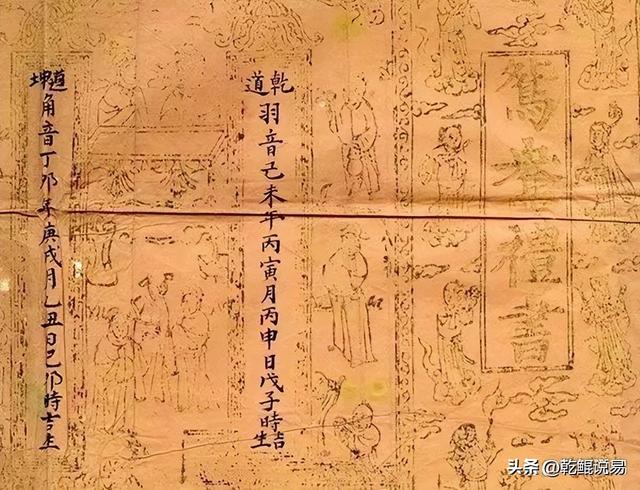 鴛鴦禮書
乾道
羽音己未年丙寅月丙申日戊子時吉生
坤道
角音丁卯年庚戌月乙丑日己卯時吉生
头条 @乾鲲说易